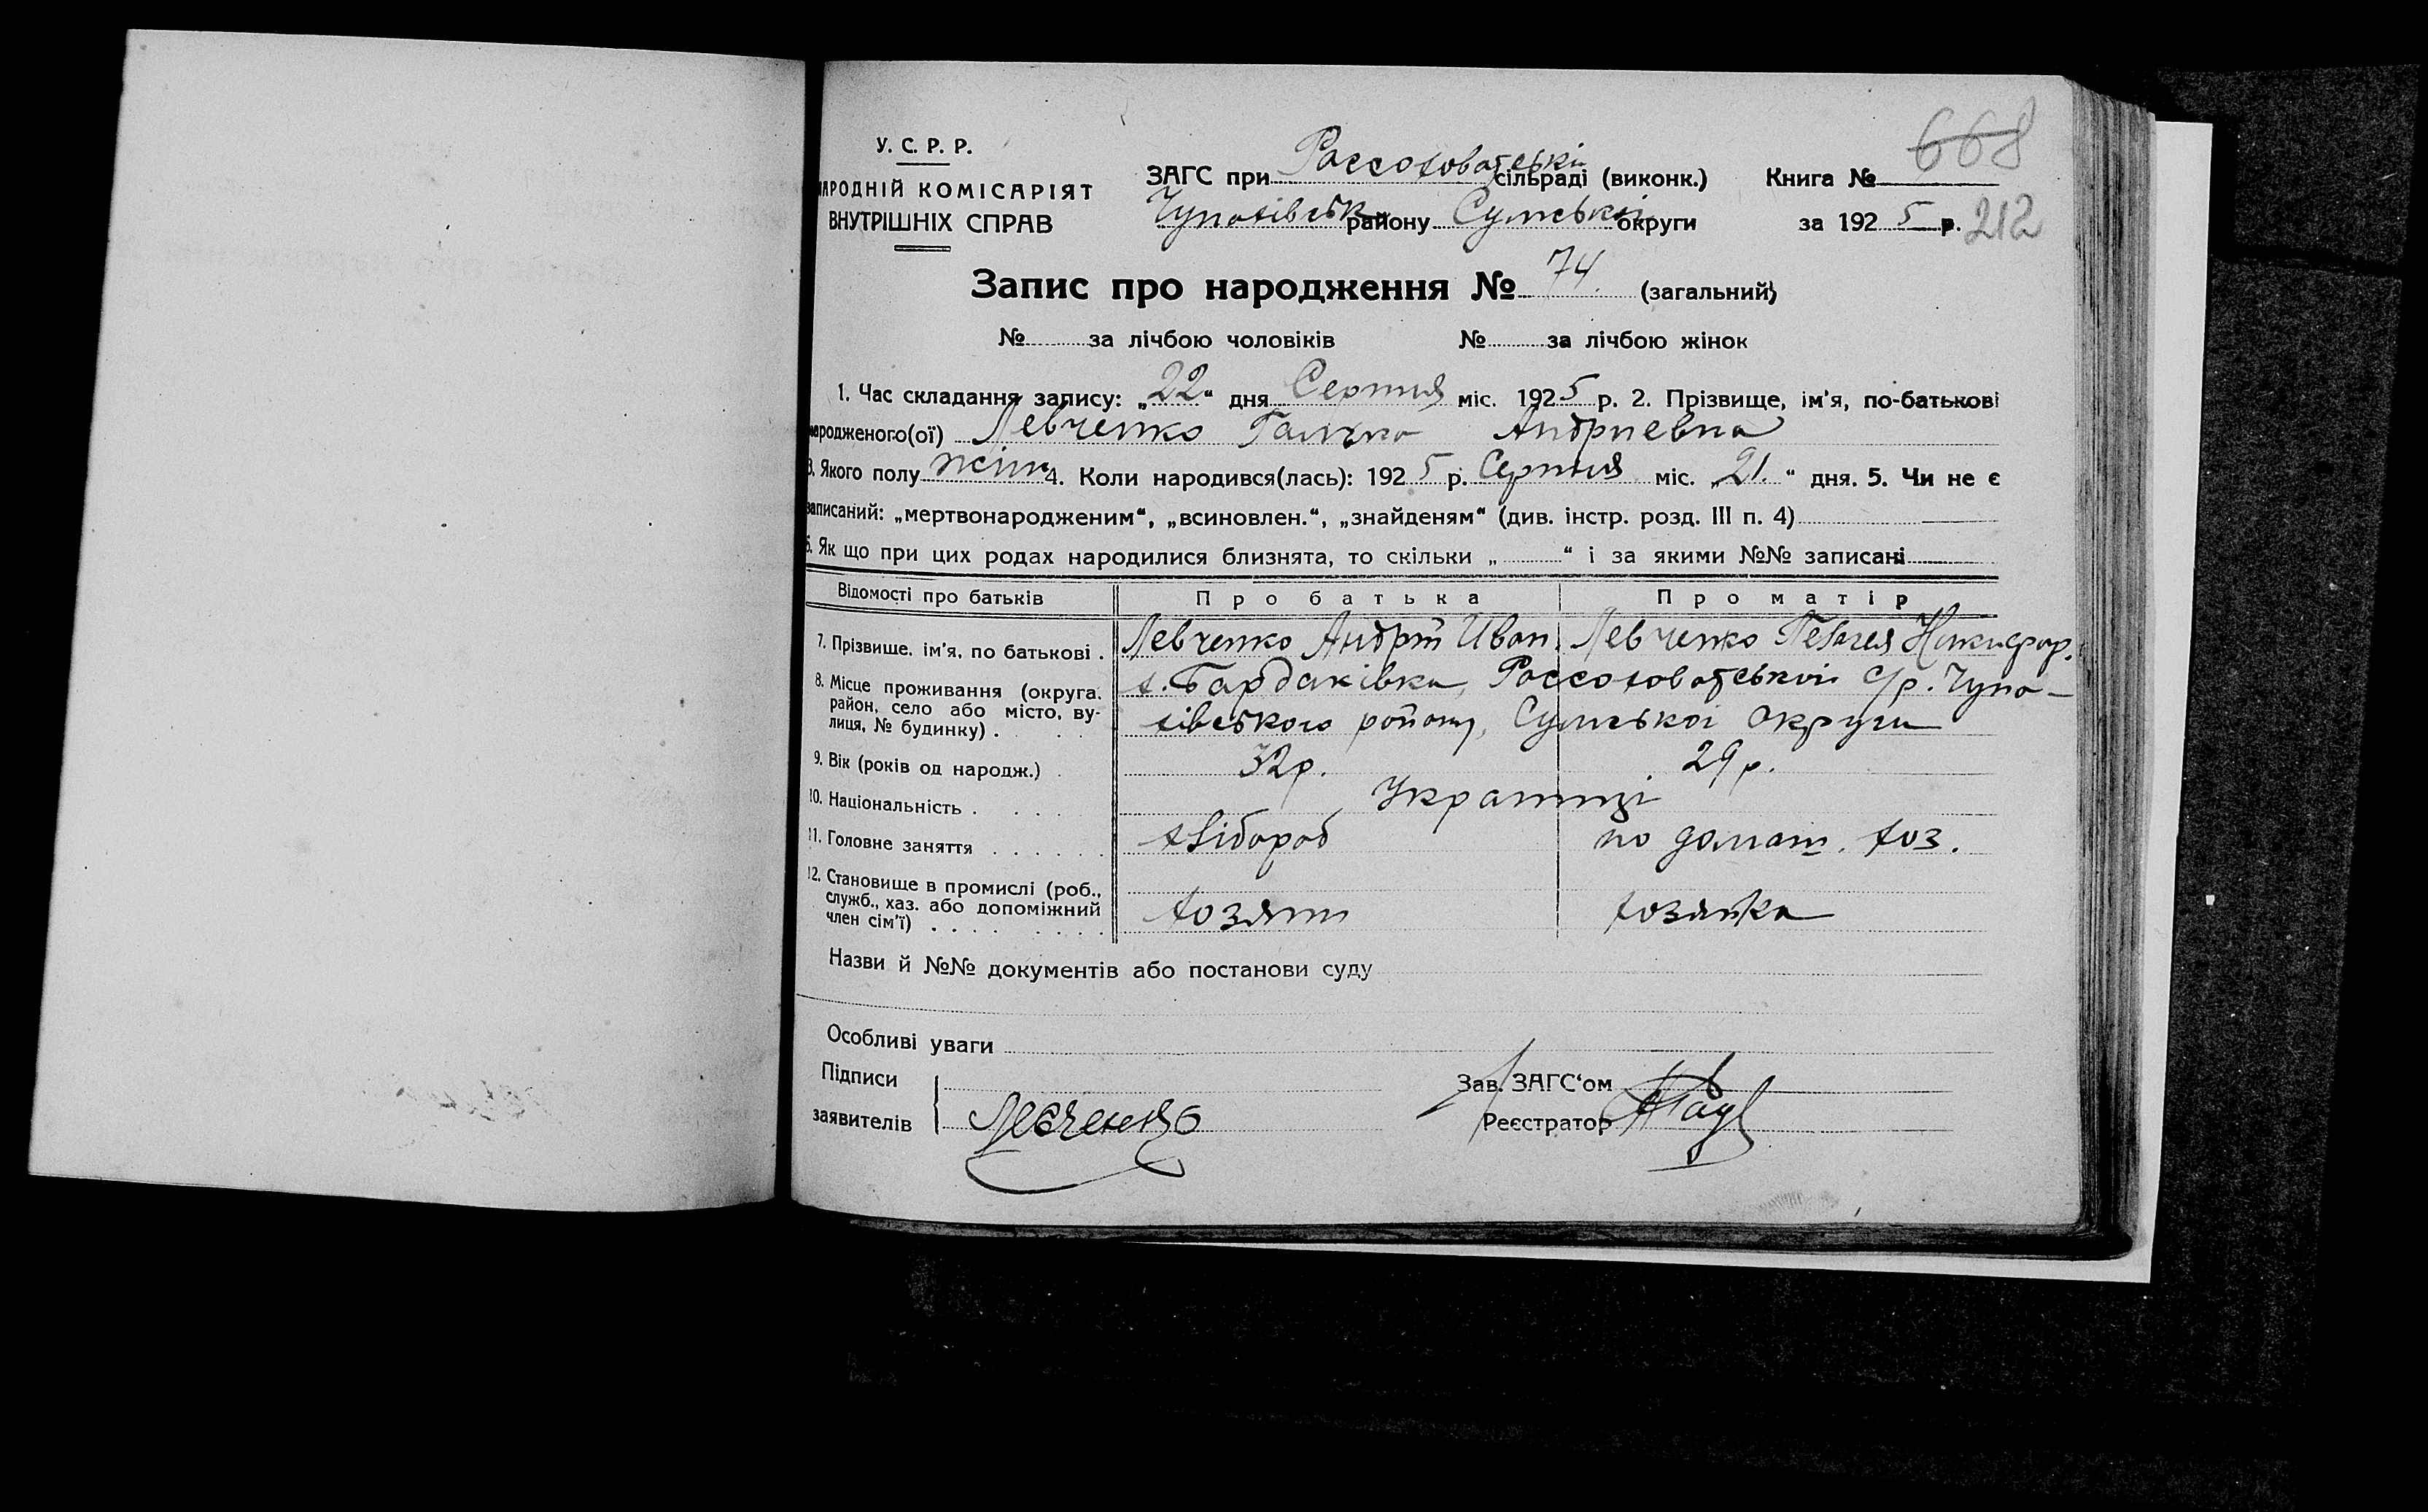 668
У. С. Р. Р.
НАРОДНІЙ КОМІСАРІЯТ
ВНУТРІШНІХ СПРАВ
ЗАГС при Россоховатській сільраді (виконк.) Книга №
Чупахівськ району Сумської округи за 1925 р. 212
Запис про народження № 74. (загальний)
№ за лічбою чоловіків № за лічбою жінок
1. Час складання запису: „22“ дня Серпня міс. 1925 р. 2. Прізвище, ім'я, по-батькові
народженого(ої) Левченко Галька Андриевна
3. Якого полу жін 4. Коли народився(лась): 1925 р. Серпня міс. „21.“ дня. 5. Чи не є
записаний: „мертвонародженим“, „всиновлен.“, „знайденям“ (див. інстр. розд. III п. 4)
6. Як що при цих родах народилися близнята, то скільки „ “ і за якими №№ записані
Відомості про батьків Про батька Про матір
7. Прізвище, ім'я, по батькові . Левченко Андрій Иван. Левченко Никифор.
8. Місце проживання (округа, район, село або місто, вулиця, № будинку) . х. Бардаківка, Россоховатської с/р. Чупа-
хівського району, Сумської Округи
9. Вік (років од народж.) . 32 р. 29 р.
10. Національність . Українці
11. Головне заняття хлібороб по домаш. хоз.
12. Становище в промислі (роб., служб., хаз. або допоміжний член сім'ї) хозяин хозяйка
Назви й №№ документів або постанови суду
Особливі уваги
Підписи
заявителів Левченко
Зав. ЗАГС'ом
Реєстратор